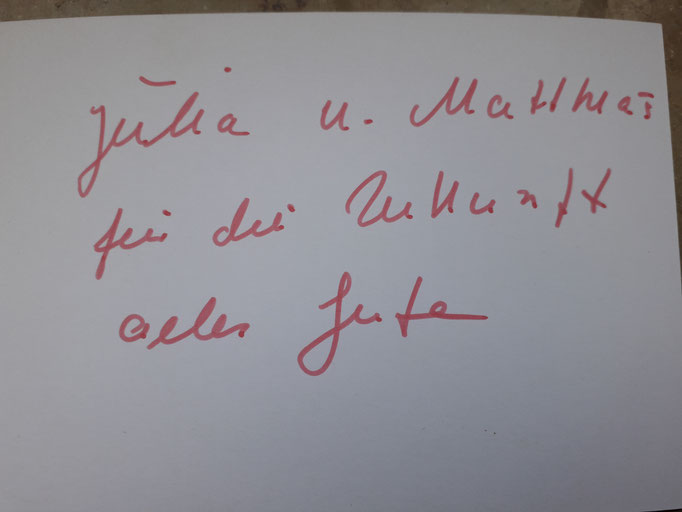 Julia u. Matthias
für die Zukunft
alles Gute